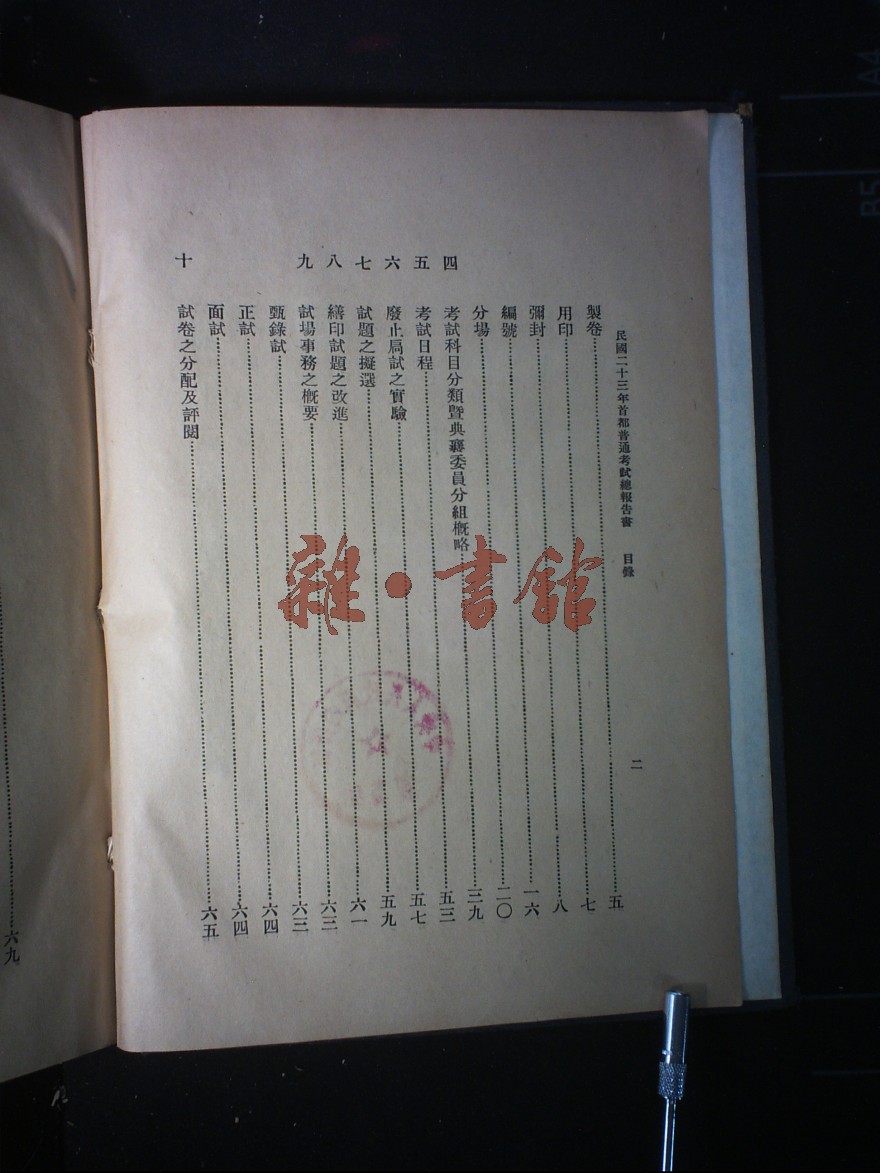 民國二十三年首都普通考試總報告書 目錄 二
製卷……五
用印……七
彌封……八
編號……一六
分場……二〇
四 考試科目分類暨典襄委員分組概略……三九
五 考試日程……五三
六 廢止局試之實驗……五七
七 試題之擬選……五九
八 繕印試題之改進……六一
九 試場事務之概要……六三
甄錄試……六三
正試……六四
面試……六四
十 試卷之分配及評閱……六五
六九
雜·書館
A4
B5